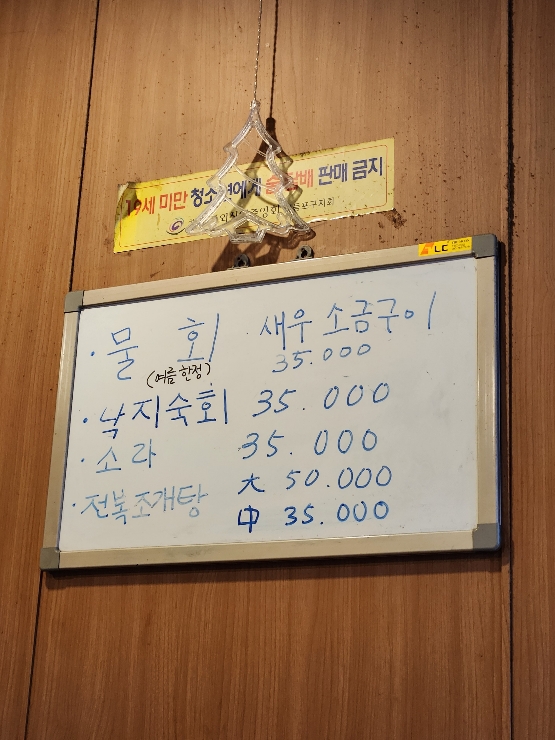 19세 미만 청소년에게 술 담배 판매 금지
· 물 회 새우 소금구이
(여름 한정) 35.000
· 낙지숙회 35.000
· 소라 35.000
· 전복조개탕 大 50.000
中 35.000